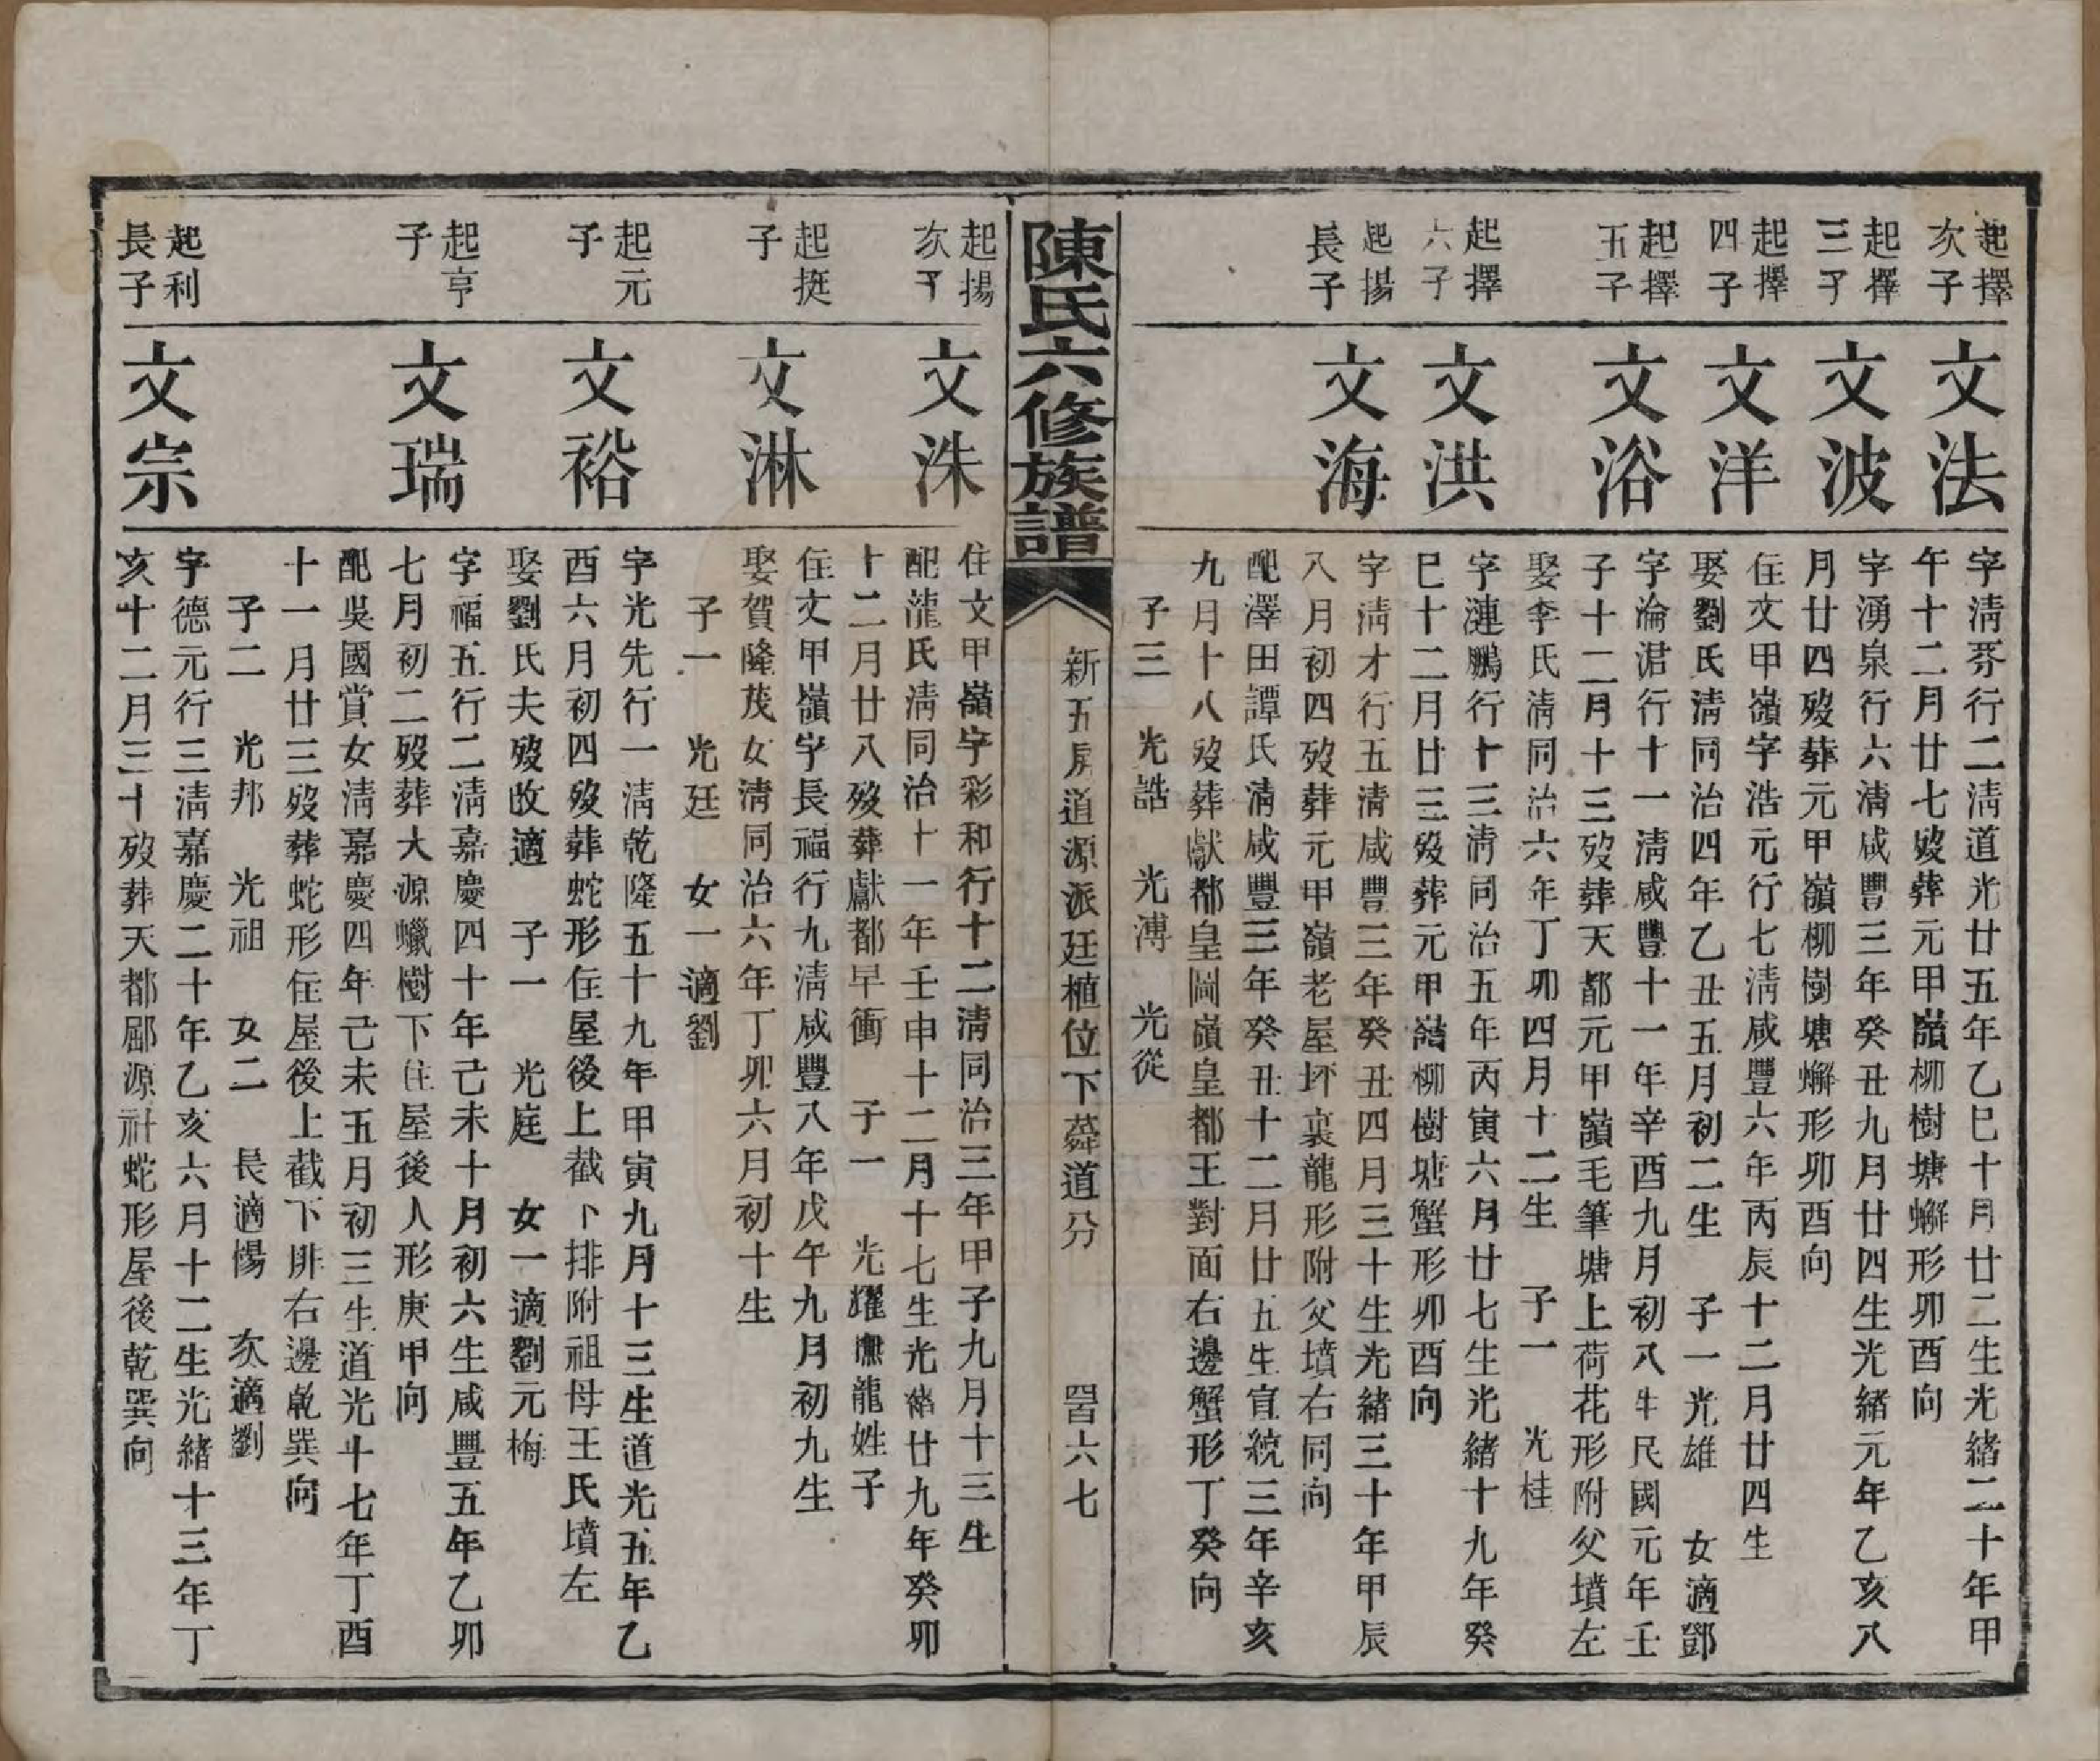 起擇
次子
文法
字淸芬行二淸道光廿五年乙巳十月廿二生光緒二十年甲
午十二月廿七歿葬元甲嶺柳樹塘蠏形卯酉向
起擇
三子
文波
字湧泉行六淸咸豐三年癸丑九月廿四生光緒元年乙亥八
月廿四歿葬元甲嶺柳樹塘蠏形卯酉向
起擇
四子
文洋
住文甲嶺字浩元行七淸咸豐六年丙辰十二月廿四生
娶劉氏淸同治四年乙丑五月初二生 子一光雄 女適鄧
起擇
五子
文浴
字淪涒行十一淸咸豐十一年辛酉九月初八生民國元年壬
子十二月十三歿葬天都元甲嶺毛筆塘上荷花形附父墳左
娶李氏淸同治六年丁卯四月十二生 子一 光桂
起擇
六子
文洪
字漣鵬行十三淸同治五年丙寅六月廿七生光緒十九年癸
巳十二月廿三歿葬元甲嶺柳樹塘蟹形卯酉向
起揚
長子
文海
字淸才行五淸咸豐三年癸丑四月三十生光緒三十年甲辰
八月初四歿葬元甲嶺老屋坏裏龍形附父墳右同向
配澤田譚氏淸咸豐三年癸丑十二月廿五生宣統三年辛亥
九月十八歿葬獻都皇圖嶺皇都王對面右邊蟹形丁癸向
子三 光誥 光溥 光從
陳氏六修族譜
新五房道源派廷植位下蕣道分
四百六七
起揚
次子
文洙
住文甲嶺字彩和行十二淸同治三年甲子九月十三生
配龍氏淸同治十一年壬申十二月十七生光緒廿九年癸卯
十二月廿八歿葬獻都早衝 子一 光耀撫龍姓子
起挺
子
文淋
住文甲嶺字長福行九淸咸豐八年戊午九月初九生
娶賀隆茂女淸同治六年丁卯六月初十生
子一 光廷 女一適劉
起元
子
文裕
字光先行一淸乾隆五十九年甲寅九月十三生道光五年乙
酉六月初四歿葬蛇形住屋後上截卜排附祖母王氏墳左
娶劉氏夫歿改適 子一 光庭 女一適劉元梅
起亨
子
文瑞
字福五行二淸嘉慶四十年己未十月初六生咸豐五年乙卯
七月初二歿葬大源蠟樹下住屋後人形庚甲向
配吳國賞女淸嘉慶四年己未五月初三生道光十七年丁酉
十一月廿三歿葬蛇形住屋後上截下排右邊乾巽向
子二 光邦 光祖 女二 長適惕 次適劉
起利
長子
文宗
字德元行三淸嘉慶二十年乙亥六月十二生光緒十三年丁
亥十二月三十歿葬天都郾源社蛇形屋後乾巽向